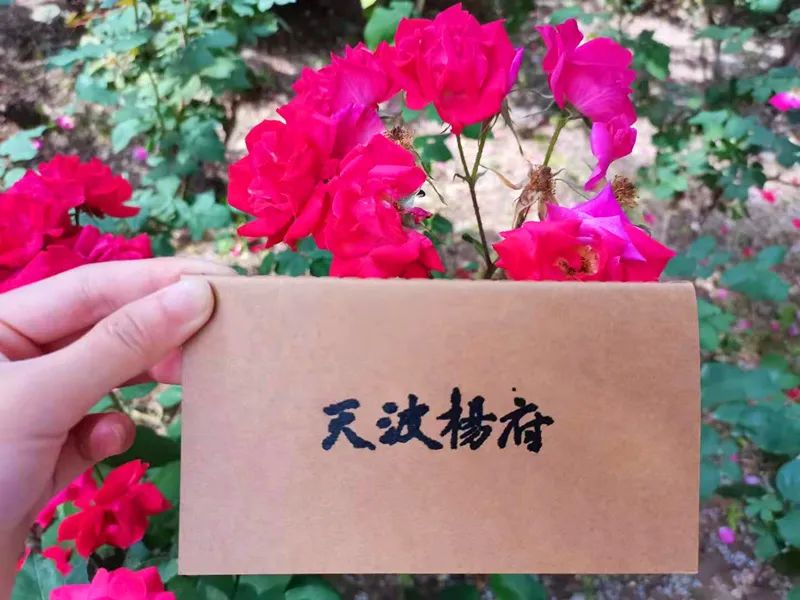 天波楊府